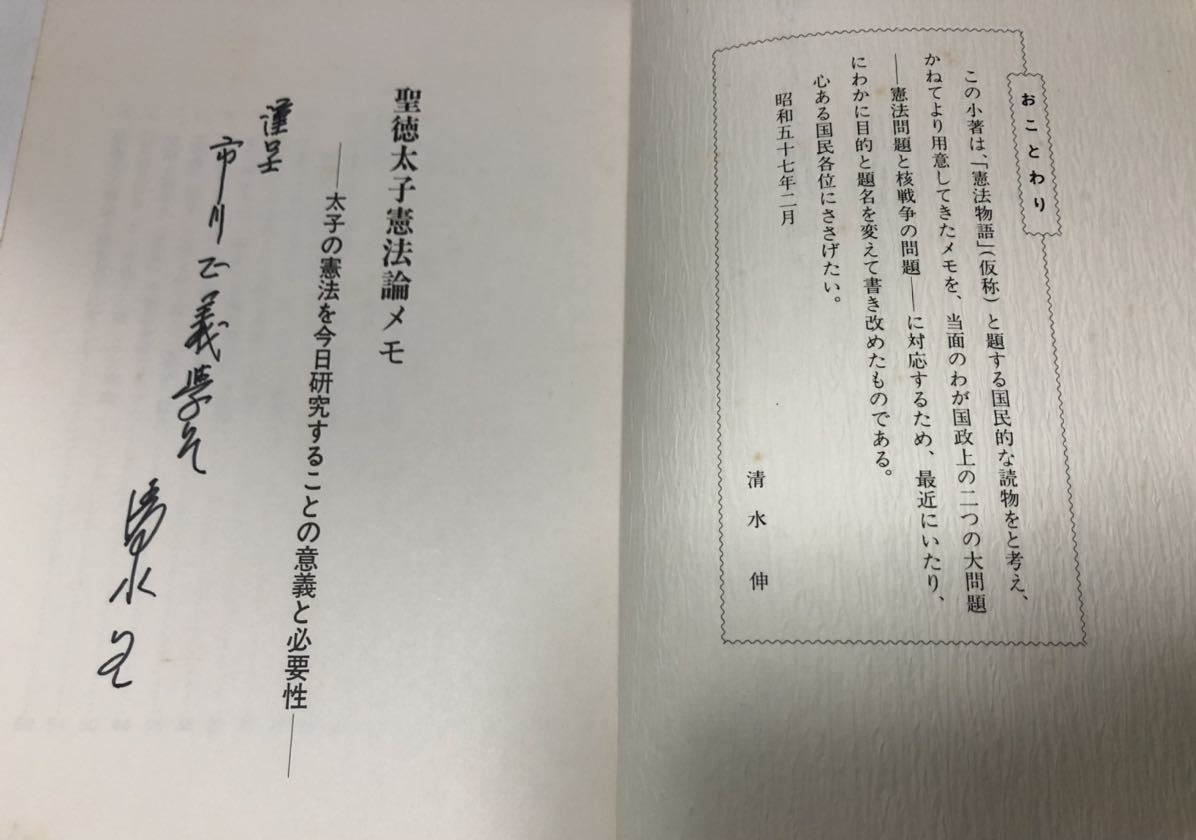 おことわり
この小著は、「憲法物語」(仮称)と題する国民的な読物をと考え、
かねてより用意してきたメモを、当面のわが国政上の二つの大問題
――憲法問題と核戦争の問題――に対応するため、最近にいたり、
にわかに目的と題名を変えて書き改めたものである。
心ある国民各位にささげたい。
昭和五十七年二月
清水伸
聖徳太子憲法論メモ
――太子の憲法を今日研究することの意義と必要性――
謹呈
市川正義学兄
清水